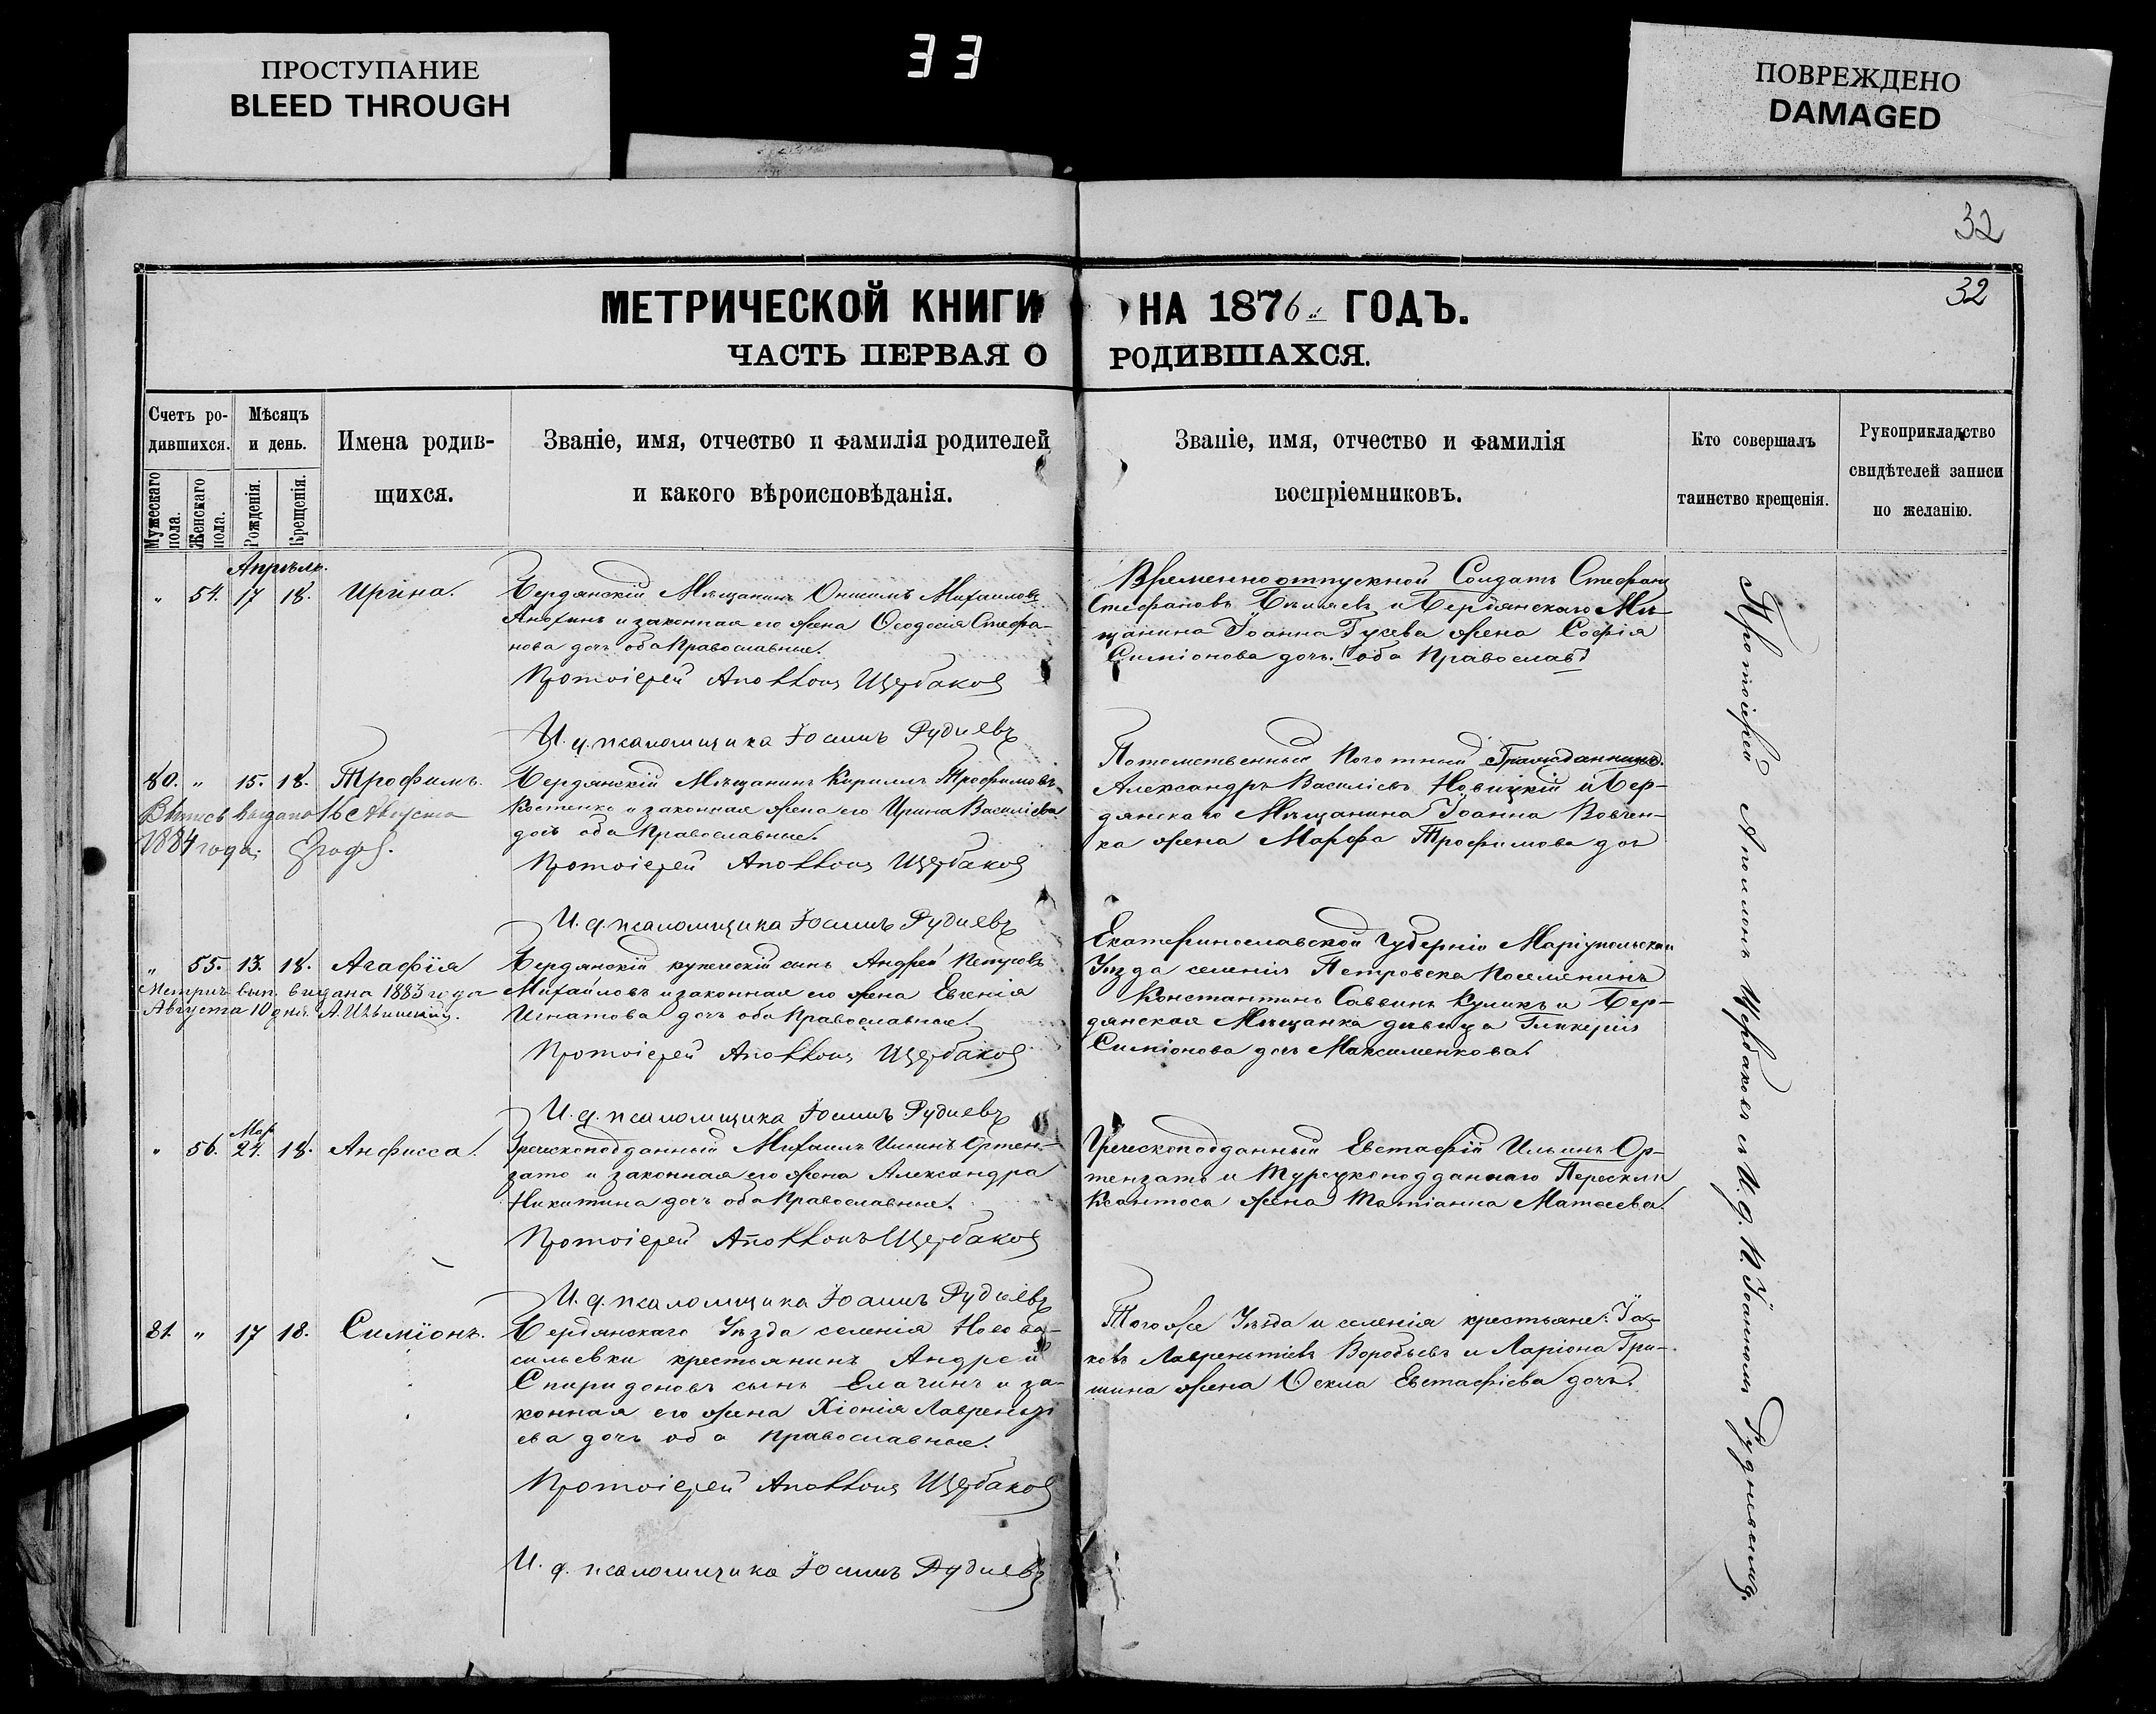 ПРОСТУПАНИЕ
BLEED THROUGH
33
ПОВРЕЖДЕНО
DAMAGED
32
32
МЕТРИЧЕСКОЙ КНИГИ НА 1876 ГОДЪ.
ЧАСТЬ ПЕРВАЯ О РОДИВШАХСЯ.
Счетъ ро-
дившихся.
Мужескаго
пола.
Женскаго
пола.
Мѣсяцъ
и день.
Рожденія.
Крещенія.
Имена родив-
шихся.
Званіе, имя, отчество и фамилія родителей
и какого вѣроисповѣданія.
Званіе, имя, отчество и фамилія
воспріемниковъ.
Кто совершалъ
таинство крещенія.
Рукоприкладство
свидѣтелей записи
по желанію.
Апрѣль.
" 54. 17 18. Ирина.
Бердянскій Мѣщанинъ Онисимъ Михаиловъ
и законная его жена Ѳеодосія Стефа-
нова дочь оба Православные.
Протоіерей Аполлонъ Щербаковъ
И. д. псаломщика Іоаннъ Рудневъ
Временно отпускной Солдатъ Стефанъ
Стефановъ и Бердянскаго Мѣ-
щанина Іоанна Гусева жена Софія
Симіонова дочь. оба Православ.
80. " 15. 18. Трофимъ.
Выпись выдана 16 Августа
1884 года.
Бердянскій Мѣщанинъ Кириллъ Трофимовъ
Костенко и законная жена его Ирина Василіева
дочь оба Православные.
Протоіерей Аполлонъ Щербаковъ
И. д. псаломщика Іоаннъ Рудневъ
Потомственный Почотный Гражданинъ
Александръ Василіевъ Новицкій и Бер-
дянскаго Мѣщанина Іоанна Вовчен-
ка жена Марфа Трофимова доч
" 55. 13. 18. Агафія
Метрич. вып. выдана 1883 года
Августа 10 дня.
Бердянскій купеческій сынъ Андрей Петровъ
Михайловъ и законная его жена Евгенія
Игнатова дочь оба Православные.
Протоіерей Аполлонъ Щербаковъ
И. д. псаломщика Іоаннъ Рудневъ
Екатеринославской Губерніи Маріупольскаго
Уѣзда селенія Петровска Поселянинъ
Константинъ Саввинъ Куликъ и Бер-
дянская Мѣщанка дѣвица Гликерія
Симіонова дочь Максименкова.
Мар.
" 56. 24. 18. Анфисса.
Греческоподданный Михаилъ Ильинъ Ортен-
зато и законная его жена Александра
Никитина дочь оба Православные.
Протоіерей Аполлонъ Щербаковъ
И. д. псаломщика Іоаннъ Рудневъ
Греческоподданный Евстафій Ильинъ Ор-
тензатъ и Турецкоподданнаго
Ксантоса жена Татіанна Матѳеева.
81. " 17 18. Симіонъ.
Бердянскаго Уѣзда селенія Ново Ва-
сильевки крестьянинъ Андрей
Спиридоновъ сынъ Елагинъ и за-
конная его жена Хіонія Лаврентьі
ева дочь оба Православные.
Протоіерей Аполлонъ Щербаковъ
И. д. псаломщика Іоаннъ Рудневъ
Того же Уѣзда и селенія крестьяне: Іа-
ковъ Лаврентіевъ Воробьевъ и Ларіона Гри-
шина жена Ѳекла Евстафіева дочь.
Протоіерей Аполлонъ Щербаковъ съ И. д. П. Іоанномъ Рудневымъ.